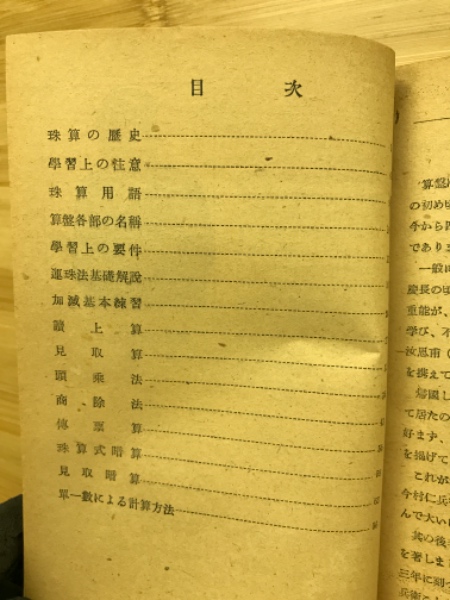 目次
珠算の歴史
學習上の注意
珠算用語
算盤各部の名稱
學習上の要件
運珠法基礎解説
加減基本練習
讀上算
見取算
頭乘法
商除法
傳票算
珠算式暗算
見取暗算
單一數による計算方法
算盤
の初め
であり
一般に
慶長の
重能が、
學び、不
を携えて
歸國し
て居たの
好まず、
を揚げて
これが
今村仁兵
んで大い
其の後
を著しま
三年に